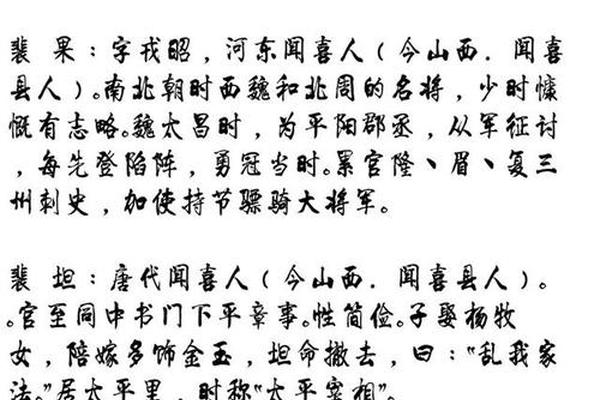 裴 果：字戎昭，河东闻喜人（今山西．闻喜
县人）。南北朝时西魏和北周的名将，少时慷
慨有志略。魏太昌时，为平阳郡丞，从军征讨
，每先登陷阵，勇冠当时。累官隆、眉、复三
州刺史，加使持节骠骑大将军。
裴 坦：唐代闻喜人（今山西．闻喜县人）。
。官至同中书门下平章事。性简俭。子娶杨牧
女，陪嫁多饰金玉，坦命撤去，曰："乱我家
法。"居太平里，时称"太平宰相"。